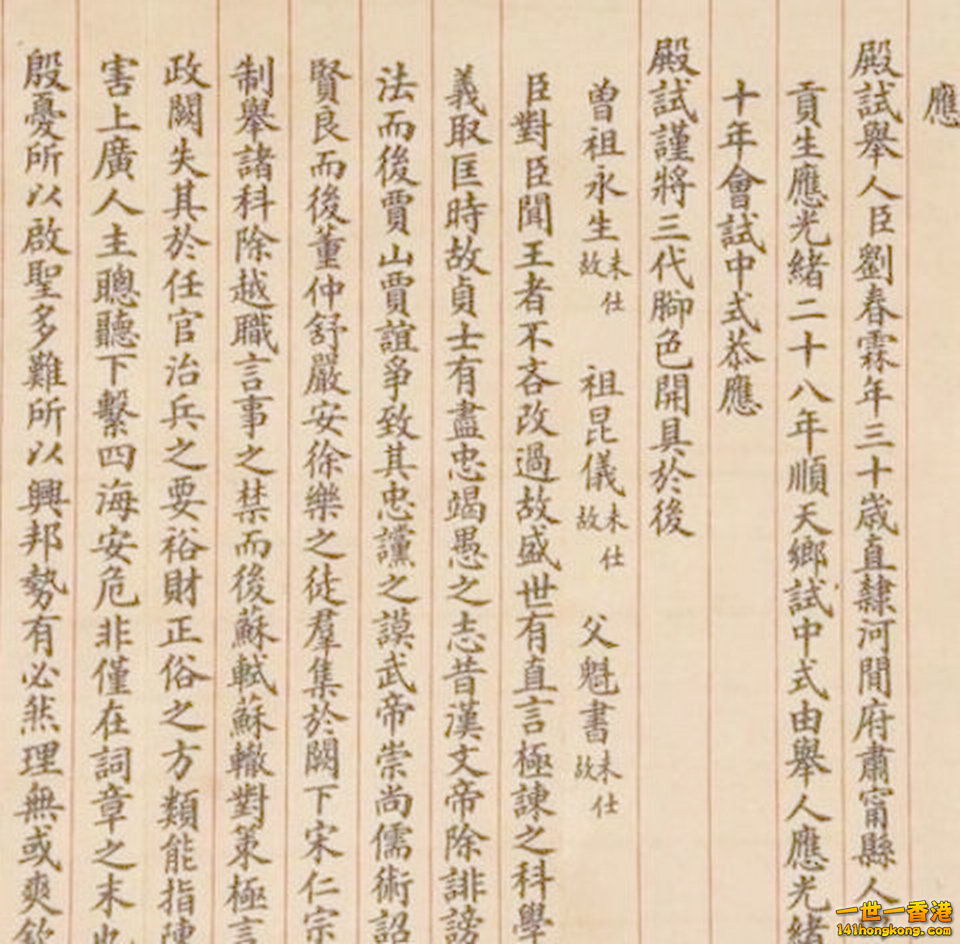 應
殿試舉人臣劉春霖年三十歲直隸河間府肅甯縣人
貢生應光緒二十八年順天鄉試中式由舉人應光緒
十年會試中式恭應
殿試謹將三代腳色開具於後
曾祖永生未仕故 祖昆儀未仕故 父魁書未仕故
臣對臣聞王者不吝改過故盛世有直言極諫之科學
義取匡時故貞士有盡忠竭愚之志昔漢文帝除誹謗
法而後賈山賈誼爭致其忠讜之謨武帝崇尚儒術詔
賢良而後董仲舒嚴安徐樂之徒羣集於闕下宋仁宗
制舉諸科除越職言事之禁而後蘇軾蘇轍對策極言
政闕失其於任官治兵之要裕財正俗之方類能指陳
害上廣人主聰聽下繫四海安危非僅在詞章之末也
殷憂所以啟聖多難所以興邦勢有必然理無或爽欽
一世一香港
141hongkong.com